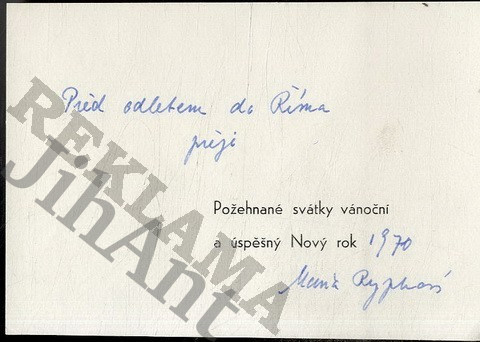 Před odletem do Říma
přeji
Požehnané svátky vánoční
a úspěšný Nový rok 1970
REKLAMA
JihAnt